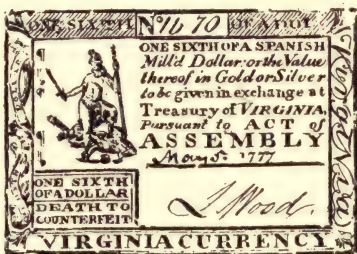 ONE SIXTH No 16 70 OF A DOLL
ONE SIXTH OF A SPANISH
Mill'd Dollar or the Value
thereof in Gold or Silver
to be given in exchange at
Treasury of VIRGINIA,
Pursuant to ACT of
ASSEMBLY
May 5. 1777
ONE SIXTH
OF A DOLLAR
DEATH TO
COUNTERFEIT
J Wood.
VIRGINIA CURRENCY